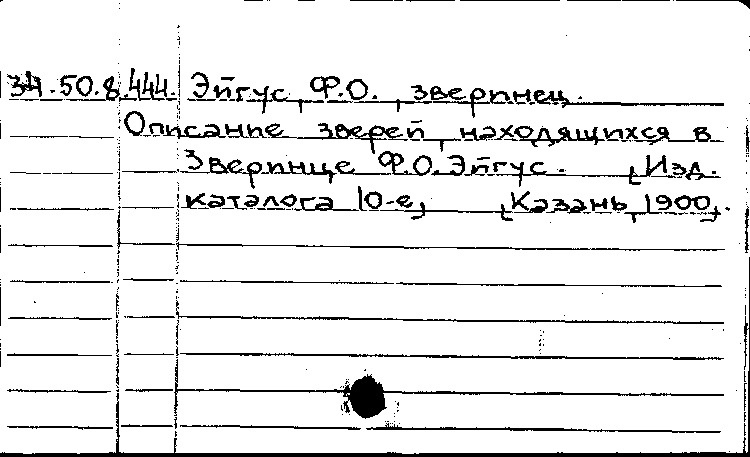 34.50.8.444. Эйгус, Ф.О., зверинец.
Описание зверей, находящихся в
Зверинце Ф.О.Эйгус. [Изд.
каталога 10-е] [Казань, 1900].